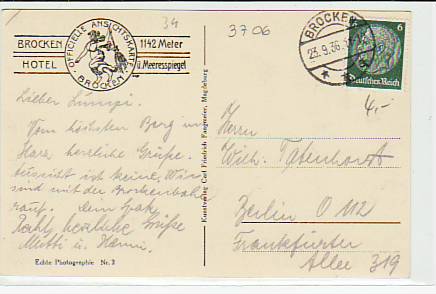 34
3706
BROCKEN
HOTEL
OFFICIELLE ANSICHTSKARTE
BROCKEN
1142 Meter
ü. Meeresspiegel
BROCKEN
23.9.36
6
Deutsches Reich
4,-
Lieber Lumpi.
Vom höchsten Berg im
Harz herzliche Grüße.
Aussicht ist keine, Wir
sind mit der Brockenbahn
rauf. Dein
Recht herzliche Grüße
Mutti u.
Echte Photographie Nr. 3
Kunstverlag Carl Friedrich Fangmeier, Magdeburg
Herrn
Wilh. Tatenhorst
Berlin O 112
Frankfurter
Allee 319